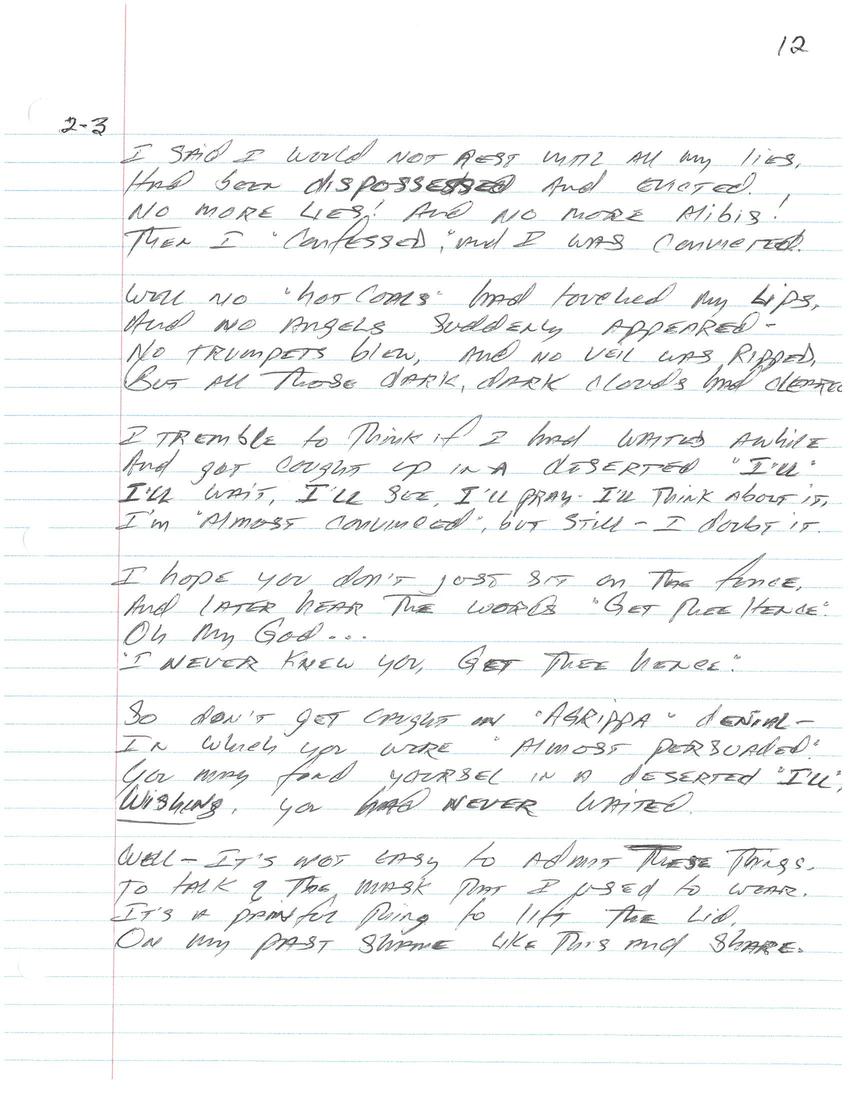 12
2-3
I SAID I WOULD NOT REST UNTIL All my lies,
Had been dispossessed And EVICTED.
NO MORE LIES! And NO MORE Alibis!
THEN I "Confessed", and I WAS CONVICTED.
Well NO "hot COALS" had touched my Lips,
And NO ANGELS SUDDENLY APPEARED-
No TRUMPETS blew, And NO VEIL WAS RIPPED,
But All Those DARK, DARK CLOUDS had CLEARED
I TREMble to Think if I had WAITED AWhile
And got CAUGHT UP IN A DESERTED "I'll"
I'll WAIT, I'll SEE, I'll PRAY- I'll Think About it,
I'm "Almost CONVINCED", but still - I doubt it.
I hope you don't JUST SIT on The fence,
And LATER hEAR The WORDS "GET Thee HENCE".
Oh My God...
"I NEVER KNEW YOU, GET ThEE hence".
So don't get CAUGHT IN "AGRIPPA" dENIAL-
IN which you were "Almost PERSUADED."
You may find yoursel IN A DESERTED "I'll",
Wishing, you had NEVER WAITED.
Well- It's not EASY to Admit These Things.
To talk of The MASK That I used to WEAR.
It's A PAINful Thing to lift The Lid,
ON my PAST ShAME LIKE This and ShARE.